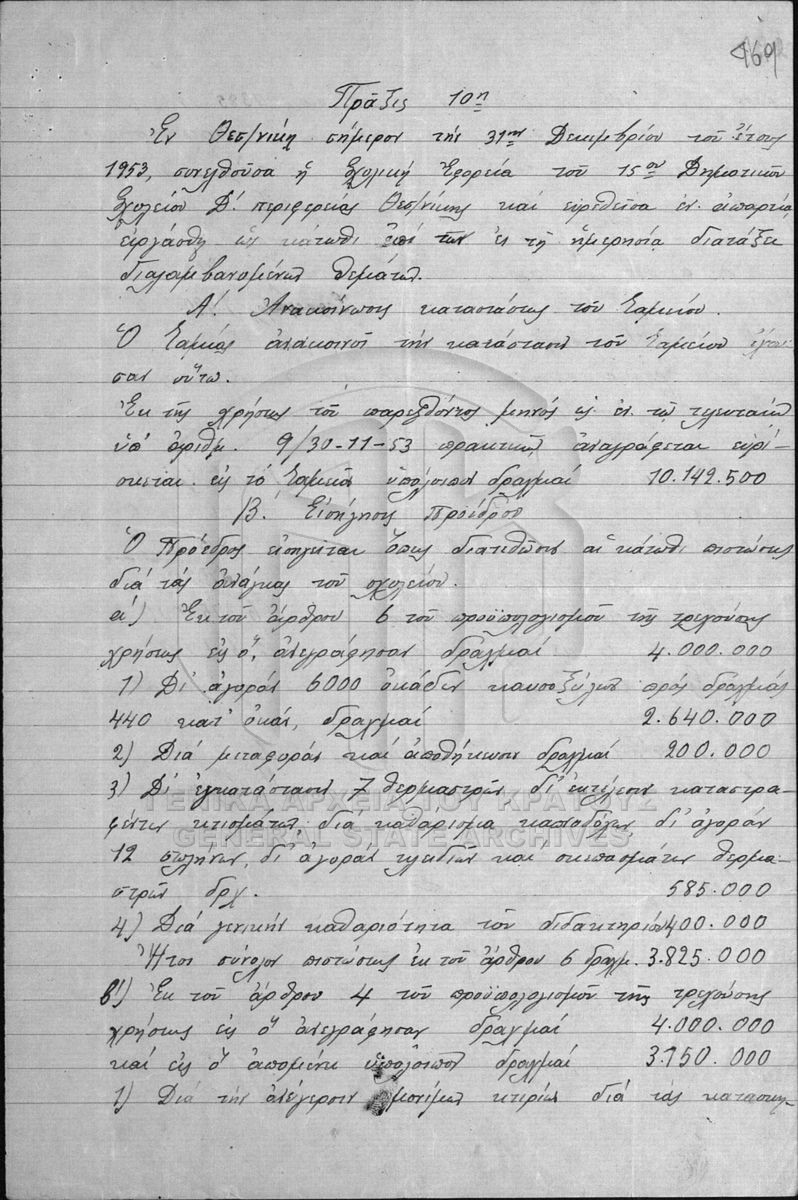 169
Πρᾶξις 10η
Ἐν Θεσ/νίκῃ σήμερον τήν 31ην Δεκεμβρίου τοῦ ἔτους
1953, συνελθοῦσα ἡ Σχολική Ἐφορεία τοῦ 15ου Δημοτικοῦ
Σχολείου Δ! περιφερείας Θεσ/νίκης καί εὑρεθεῖσα ἐν ἀπαρτίᾳ
εἰργάσθη ὡς κάτωθι ἐπί τῶν ἐν τῇ ἡμερησίᾳ διατάξει
διαλαμβανομένων θεμάτων.
Α! Ἀνακοίνωσις καταστάσεως τοῦ Ταμείου.
Ὁ Ταμίας ἀνακοινοῖ τήν κατάστασιν τοῦ Ταμείου ἔχου-
σαν οὕτω.
Ἐκ τῆς χρήσεως τοῦ παρελθόντος μηνός ὡς ἐν τῷ τελευταίῳ
ὑπ' ἀριθμ. 9/30-11-53 πρακτικῷ ἀναγράφεται εὑρί-
σκεται εἰς τό Ταμεῖον ὑπόλοιπον δραχμαί 10.142.500
Β. Εἰσήγησις Προέδρου
Ὁ Πρόεδρος εἰσηγεῖται ὅπως διατεθῶσιν αἱ κάτωθι πιστώσεις
διά τάς ἀνάγκας τοῦ σχολείου.
α!) Ἐκ τοῦ ἄρθρου 6 τοῦ προϋπολογισμοῦ τῆς τρεχούσης
χρήσεως εἰς ὅ, ἀνεγράφησαν δραχμαί 4.000.000
1) Δι' ἀγοράν 6000 ὀκάδων καυσοξύλων πρός δραχμάς
440 κατ' ὀκάν, δραχμαί 2.640.000
2) Διά μεταφοράν καί ἀποθήκευσιν δραχμαί 200.000
3) Δι' ἐγκατάστασιν 7 θερμαστρῶν δι' ἐκτέλεσιν καταστρα-
φέντων κτισμάτων, διά καθάρισμα καπνοδόχων, δι' ἀγοράν
12 σωλήνων, δι' ἀγοράν κλειδιῶν καί σκεπασμάτων θερμα-
στρῶν δρχ. 585.000
4) Διά γενικήν καθαριότητα τοῦ διδακτηρίου 400.000
Ἤτοι σύνολον πιστώσεως ἐκ τοῦ ἄρθρου 6 δραχμ. 3.825.000
β!) Ἐκ τοῦ ἄρθρου 4 τοῦ προϋπολογισμοῦ τῆς τρεχούσης
χρήσεως εἰς ὅ ἀνεγράφησαν δραχμαί 4.000.000
καί εἰς ὅ ἀπομένει ὑπόλοιπον δραχμαί 3.750.000
1) Διά τήν ἀνέγερσιν μονίμων κτιρίων διά τάς κατασκη-
ΓΕΝΙΚΑ ΑΡΧΕΙΑ ΤΟΥ ΚΡΑΤΟΥΣ
GENERAL STATE ARCHIVES